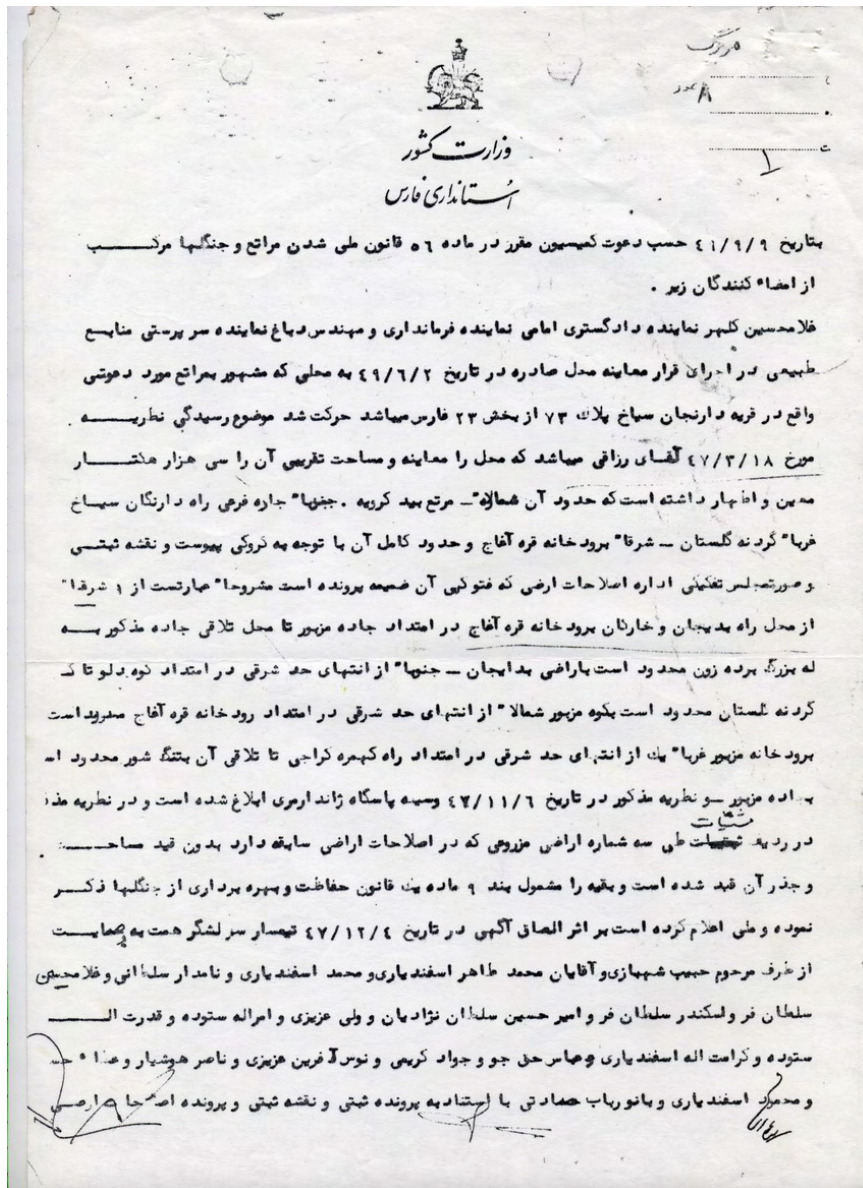 هر برگ
۸
ت
۱
وزارت کشور
استانداری فارس
بتاریخ ۴۱/۹/۹ حسب دعوت کمیسیون مقرر در ماده ۵۶ قانون ملی شدن مراتع و جنگلها مرکب
از امضاء کنندگان زیر .
غلامحسین کلهر نماینده دادگستری امامی نماینده فرمانداری و مهندس دباغ نماینده سرپرستی منابع
طبیعی در اجرای قرار معاینه محل صادره در تاریخ ۴۹/۶/۲ به محلی که مشهور بمراتع مورد دعوتی
واقع در قریه دارنجان سیاخ پلاک ۷۳ از بخش ۲۳ فارس میباشد حرکت شد موضوع رسیدگی نظریه
مورخ ۴۷/۳/۱۸ آقای رزاقی میباشد که محل را معاینه و مساحت تقریبی آن را سی هزار هکتار
معین و اظهار داشته است که حدود آن شمالا" ــ مرتع بید کرویه . جنوبا" جاره فرعی راه دارنگان سیاخ
غربا" گردنه گلستان ــ شرقا" برودخانه قره آغاج و حدود کامل آن با توجه به کروکی پیوست و نقشه ثبتی
و صورتمجلس تفکیکی اداره اصلاحات ارضی که فتوکپی آن ضمیمه پرونده است مشروحا" عبارتست از ۱ شرقا"
از محل راه بدیجان و خارگان برودخانه قره آغاج در امتداد جاده مزبور تا محل تلاقی جاده مذکور به
له بزرگ برده زون محدود است باراضی بدایجان ــ جنوبا" از انتهای حد شرقی در امتداد کوه دلو تا کـ
گردنه گلستان محدود است بکوه مزبور شمالا" از انتهای حد شرقی در امتداد رودخانه قره آغاج محدود است
برودخانه مزبور غربا" یک از انتهای حد شرقی در امتداد راه کهمره کراچی تا تلاقی آن بتنگ شور محدود اس
بجاده مزبور ــ و نظریه مذکور در تاریخ ۴۷/۱۱/۶ وسیله پاسگاه ژاندارمری ابلاغ شده است و در نظریه مذ
در ردیف طی سه شماره اراضی مزروعی که در اصلاحات اراضی سابقه دارد بدون قید مساحت
و جذر آن قید شده است و بقیه را مشمول بند ۹ ماده یک قانون حفاظت و بهره برداری از جنگلها ذکر
نموده و ملی اعلام کرده است بر اثر الصاق آگهی در تاریخ ۴۷/۱۲/۴ تیمسار سرلشگر همت به
از طرف مرحوم حبیب شهبازی و آقایان محمد طاهر اسفندیاری و محمد اسفندیاری و نامدار سلطانی و غلامحسین
سلطان فر و اسکندر سلطان فر و امیر حسین سلطان نژادیان و ولی عزیزی و امراله ستوده و قدرت الـ
ستوده و کرامت اله اسفندیاری و عباس حق جو و جواد کریمی و نوش آفرین عزیزی و ناصر هوشیار و
و محمود اسفندیاری و بانو رباب با استناد به پرونده ثبتی و نقشه ثبتی و پرونده اصلاحات ارضی